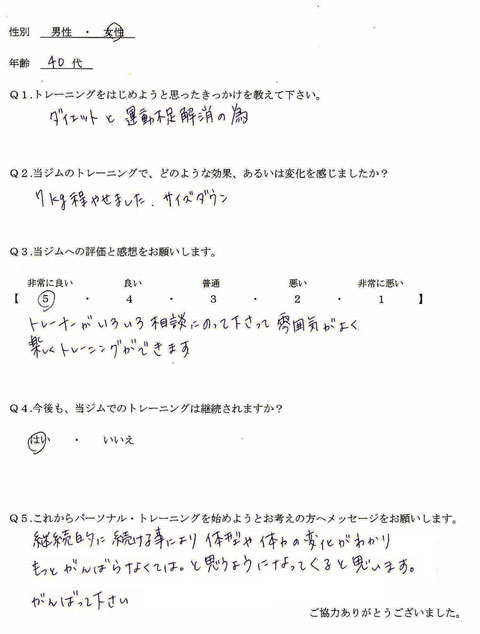 性別 男性 ・ 女性
年齢 40代
Q1.トレーニングをはじめようと思ったきっかけを教えて下さい。
ダイエットと運動不足解消の為
Q2.当ジムのトレーニングで、どのような効果、あるいは変化を感じましたか？
7kg程やせました、サイズダウン
Q3.当ジムへの評価と感想をお願いします。
非常に良い 良い 普通 悪い 非常に悪い
【 5 ・ 4 ・ 3 ・ 2 ・ 1 】
トレーナーがいろいろ相談にのって下さって雰囲気がよく
楽しくトレーニングができます
Q4.今後も、当ジムでのトレーニングは継続されますか？
はい ・ いいえ
Q5.これからパーソナル・トレーニングを始めようとお考えの方へメッセージをお願いします。
継続的に続ける事により体型や体力の変化がわかり
もっとがんばらなくては。と思うようになってくると思います。
がんばって下さい
ご協力ありがとうございました。